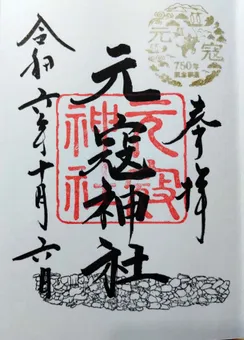 奉拝
元寇神社
令和六年十月六日
元寇
750年
元寇神社